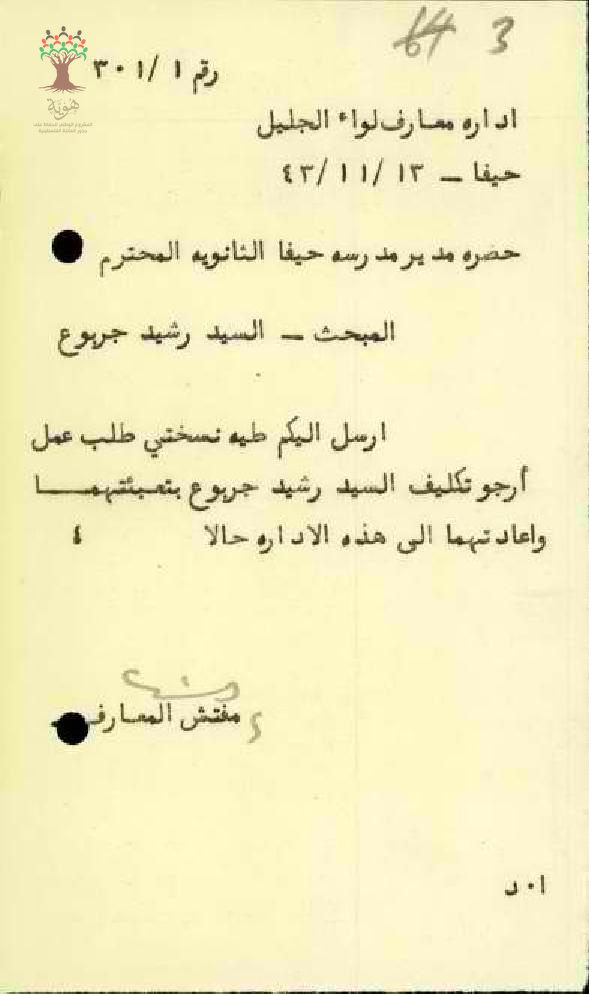 64 3
رقم ٣٠١/١
هوية
اداره معارف لواء الجليل
حيفا – ٤٣/١١/١٣
حضره مدير مدرسه حيفا الثانويه المحترم
المبحث – السيد رشيد جربوع
ارسل اليكم طيه نسختي طلب عمل
أرجو تكليف السيد رشيد جربوع بتعبئتهمـــا
واعادتهما الى هذه الاداره حالا ٤
مفتش المعارف
ا٠د